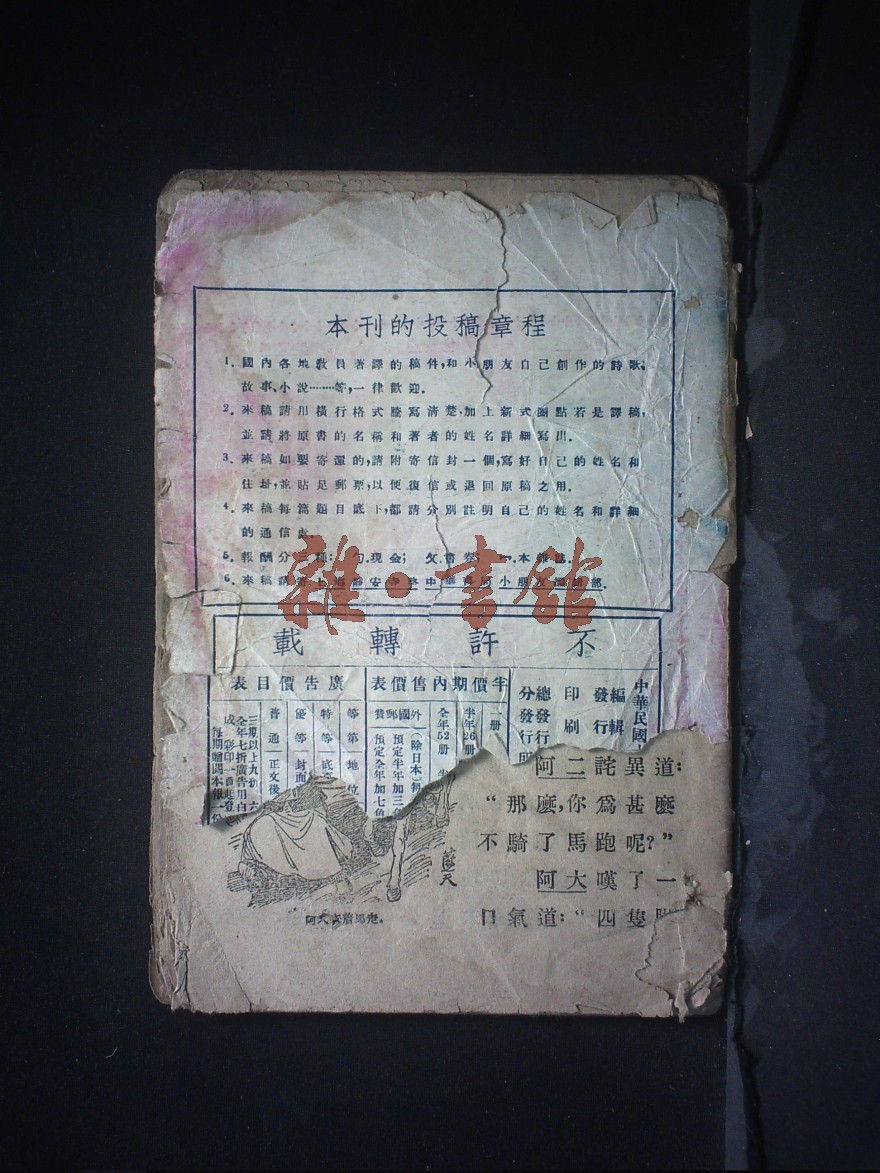 本刊的投稿章程
1. 國內各地教員著譯的稿件,和小朋友自己創作的詩歌,
故事、小說………等,一律歡迎.
2. 來稿請用橫行格式謄寫清楚,加上新式圈點若是譯稿,
並請將原書的名稱和著者的姓名詳細寫出.
3. 來稿如要寄還的,請附寄信封一個,寫好自己的姓名和
住址,並貼足郵票,以便復信或退回原稿之用.
4. 來稿每篇題目底下,都請分別註明自己的姓名和詳細
的通信處.
5. 報酬分三種:ㄅ.現金; ㄆ.書券 ㄇ.本雜誌.
6. 來稿請寄上海靜安寺路中華書局小朋友編輯部.
雜·書館
不許轉載
中華民國
編輯
發行
印刷
總發行
分發行所
半價期內售價表
一册
半年26册
全年52册
外國郵費
(除日本)
預定半年加三角
預定全年加七角
廣告價目表
等第 地位
特等 底
優等 封面
普通 正文後
三期以上九折 六
全年七折 廣告用白
成 彩印
每期贈閱本報一份
阿二詫異道:
“那麽,你爲甚麽
不騎了馬跑呢?”
阿大嘆了一
口氣道:“四隻
阿大
走.